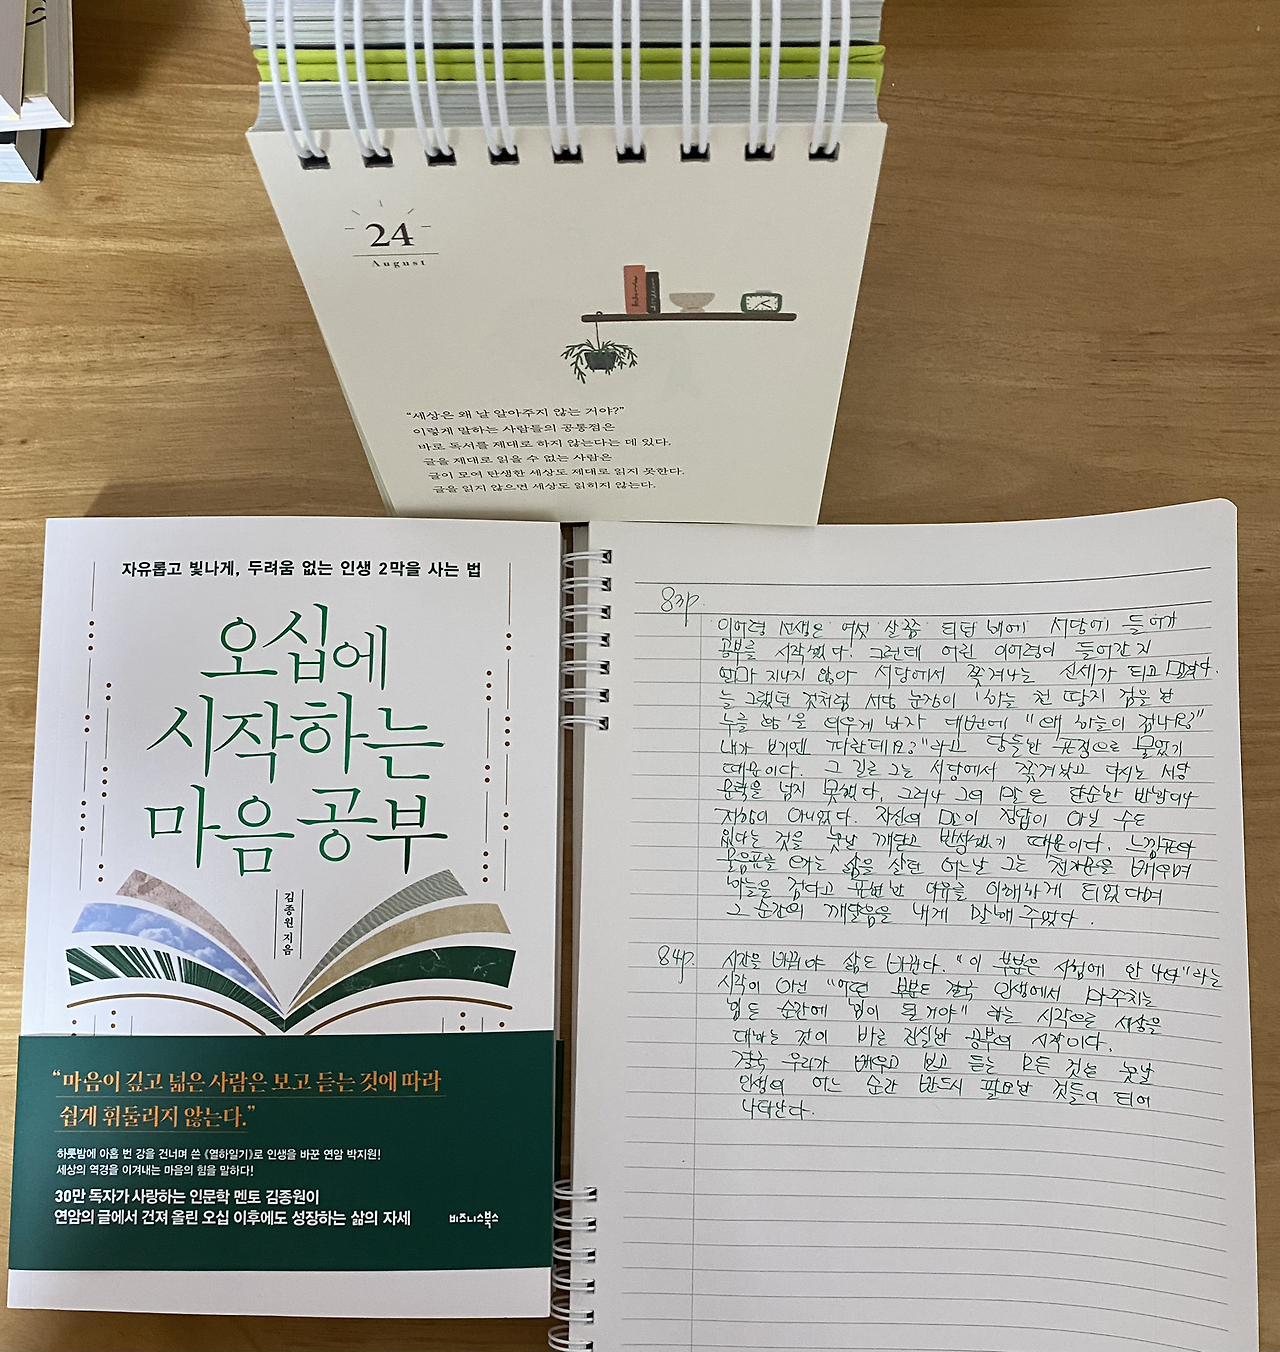 24
August
"세상은 왜 날 알아주지 않는 거야?"
이렇게 말하는 사람들의 공통점은
바로 독서를 제대로 하지 않는다는 데 있다.
글을 제대로 읽을 수 없는 사람은
글이 모여 탄생한 세상도 제대로 읽지 못한다.
글을 읽지 않으면 세상도 읽히지 않는다.
자유롭고 빛나게, 두려움 없는 인생 2막을 사는 법
오십에
시작하는
마음 공부
김종원 지음
"마음이 깊고 넓은 사람은 보고 듣는 것에 따라
쉽게 휘둘리지 않는다."
하룻밤에 아홉 번 강을 건너며 쓴 《열하일기》로 인생을 바꾼 연암 박지원!
세상의 역경을 이겨내는 마음의 힘을 말하다!
30만 독자가 사랑하는 인문학 멘토 김종원이
연암의 글에서 건져 올린 오십 이후에도 성장하는 삶의 자세
비즈니스북스
83p.
이어령 선생은 여섯 살쯤 되던 해에 서당에 들어가
공부를 시작했다. 그런데 어린 이어령이 들어간 지
얼마 지나지 않아 서당에서 쫓겨나는 신세가 되고 말았다.
늘 그랬던 것처럼 서당 훈장이 '하늘 천 땅 지 검을 현
누를 황'을 외우게 하자 대번에 "왜 하늘이 검나요?"
내가 보기엔 파란데요?"라고 당돌한 표정으로 물었기
때문이다. 그 길로 그는 서당에서 쫓겨났고 다시는 서당
문턱을 넘지 못했다. 그러나 그의 말은 단순한 반항이나
저항이 아니었다. 자신의 말이 정답이 아닐 수도
있다는 것을 훗날 깨닫고 반성했기 때문이다. 느낌표와
물음표를 오가는 삶을 살던 어느날 그는 천자문을 배우며
하늘을 검다고 표현한 이유를 이해하게 되었다며
그 순간의 깨달음을 내게 말해 주었다.
84p.
시각을 바꿔야 삶도 바뀐다. "이 부분은 시험에 안 나와"라는
시각이 아닌 "어떤 부분도 결국 인생에서 마주치는
힘든 순간에 힘이 될거야" 하는 시각으로 세상을
대하는 것이 바로 진실한 공부의 시작이다.
결국 우리가 배우고 보고 듣는 모든 것은 훗날
인생의 어느 순간 반드시 필요한 것들이 되어
나타난다.